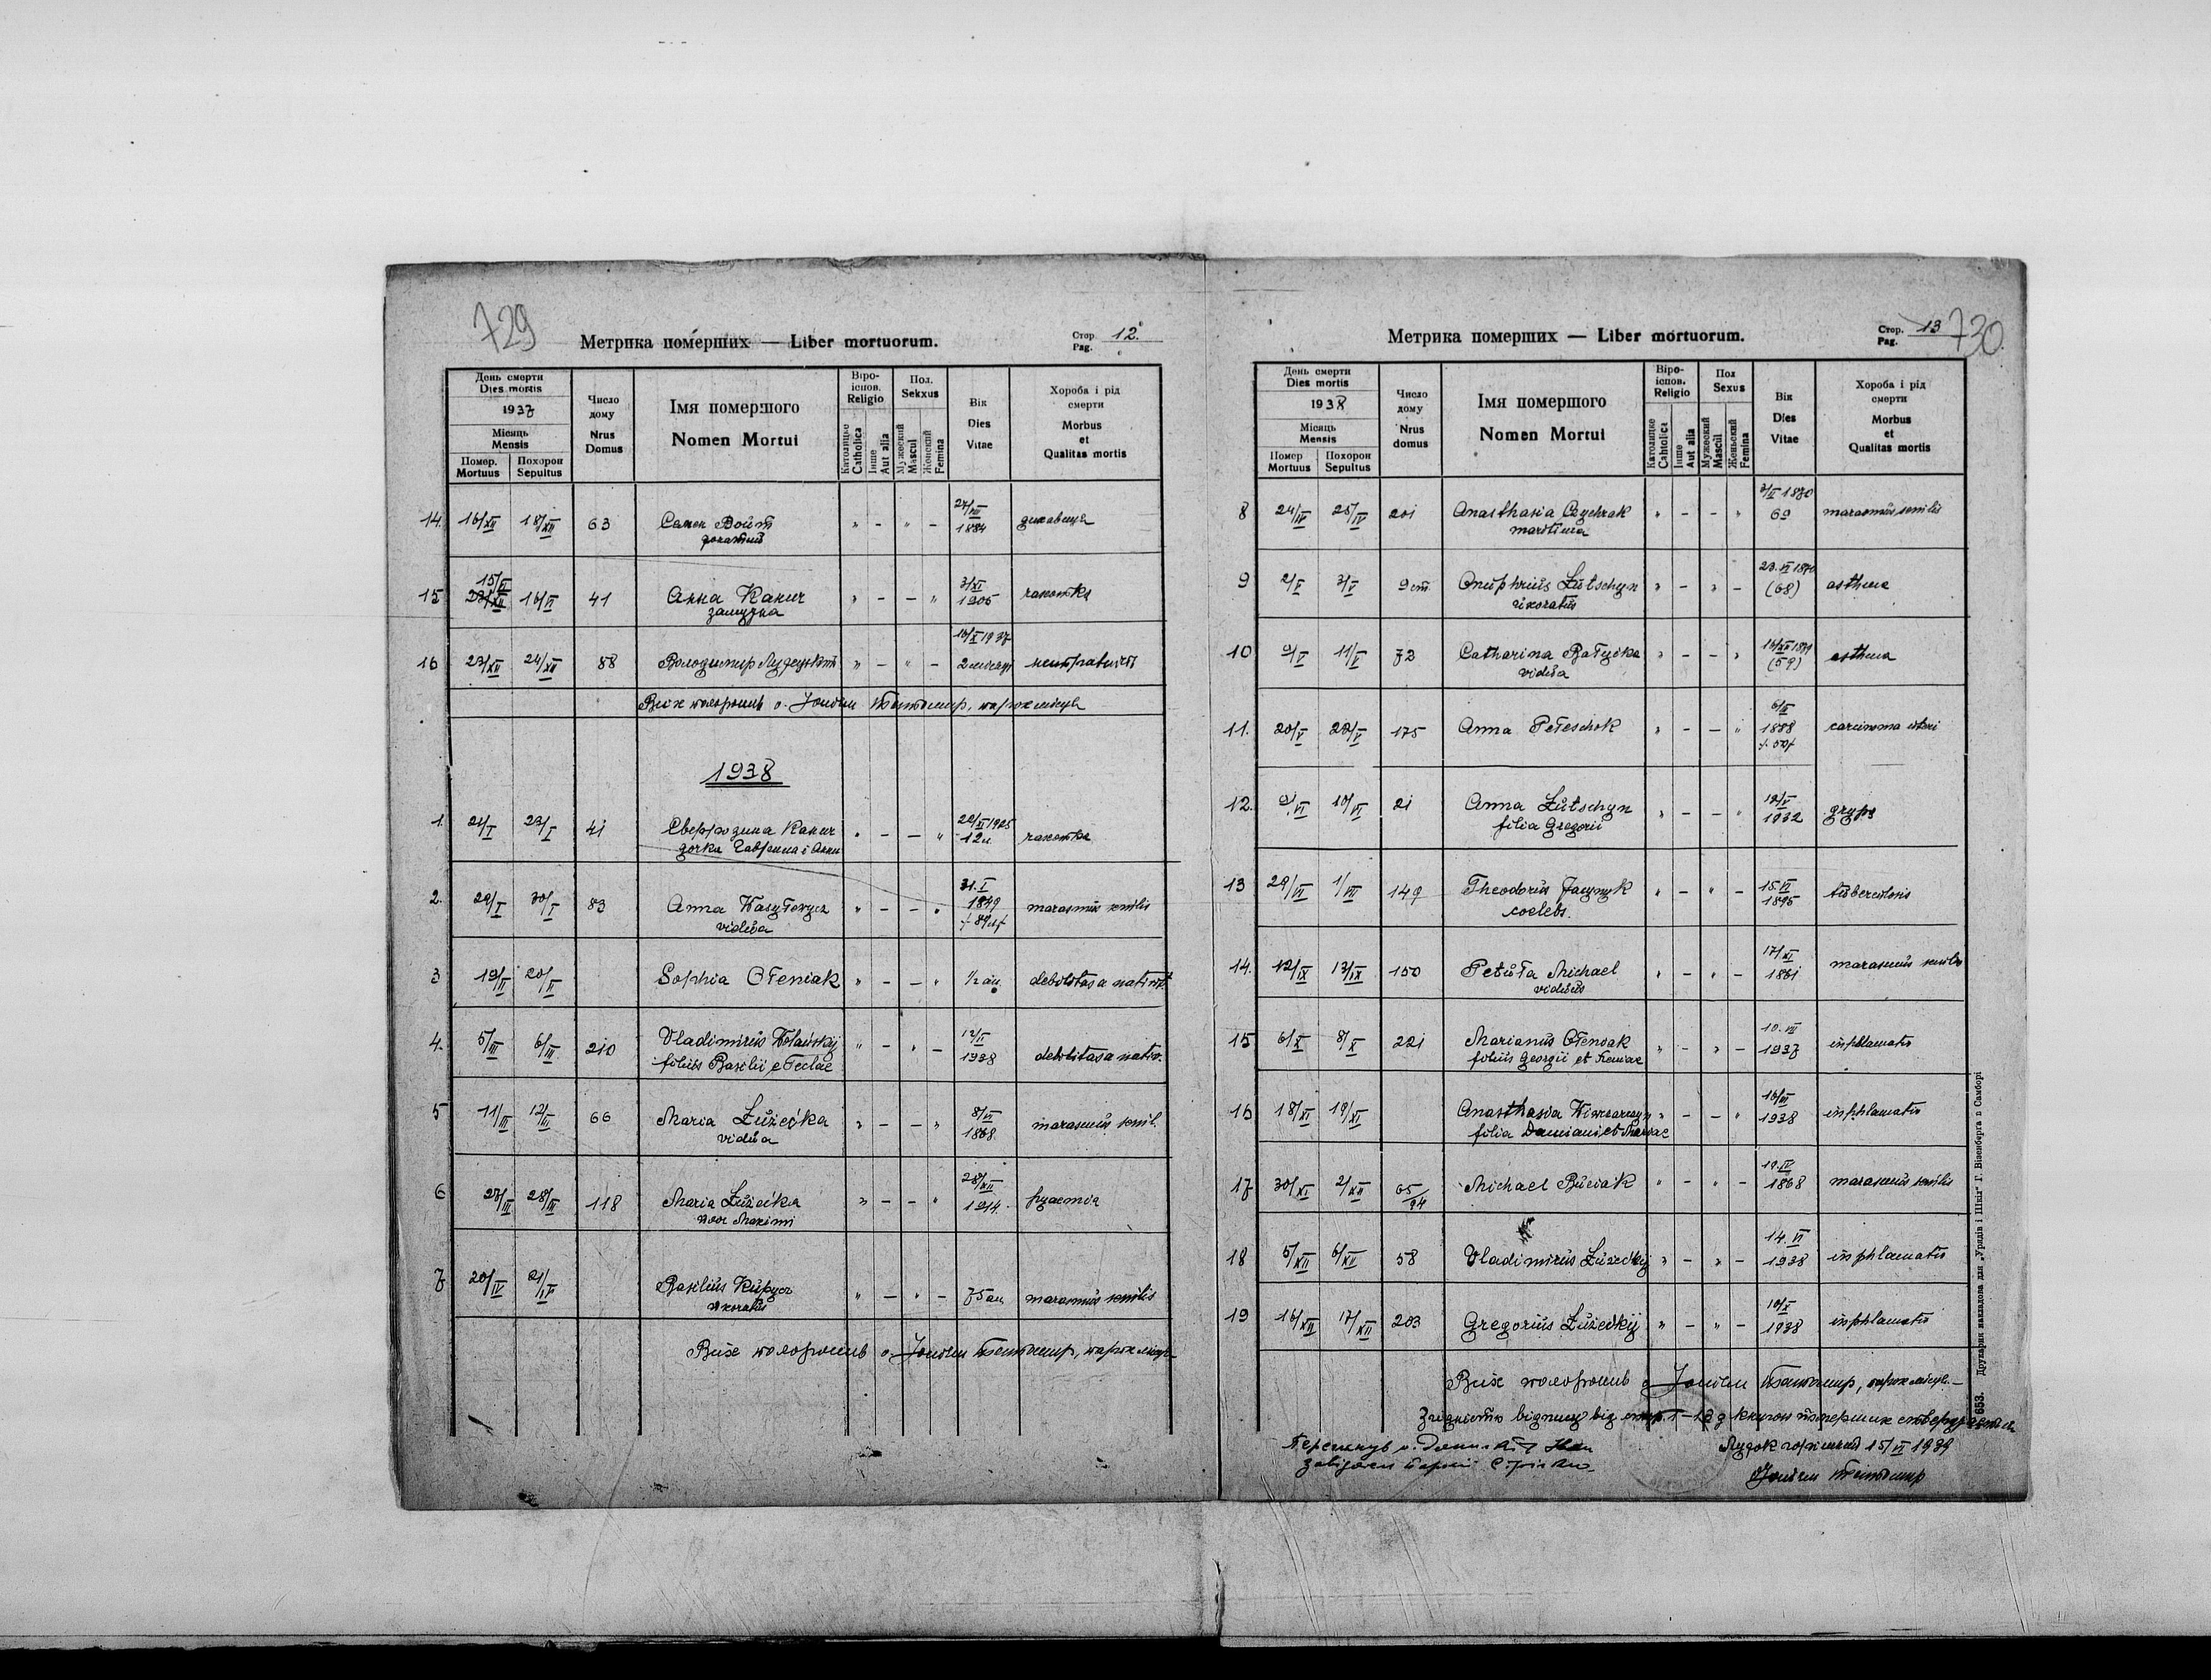 729
Метрика померших — Liber mortuorum.
Стор. Pag. 12.
День смерти
Dies mortis
1937
Місяць
Mensis
Помер. Mortuus
Похорон Sepultus
Число дому
Nrus Domus
Імя помершого
Nomen Mortui
Віро-існов.
Religio
Католицке Catholica
Інше Aut alia
Пол.
Sekxus
Мужеский Mascul
Женский Femina
Вік
Dies Vitae
Хороба і рід смерти
Morbus et Qualitas mortis
14. 16/XII 18/XII 63 Семен Войт " - " - 27/VII 1884
15 15/VI 16/VI 41 Анна Канич замужна " - - " 3/XI 1905
16 23/XII 24/XII 88 Володимир Лужецький " - " - 16/X 1937 2 місяці
Всіх похоронив о. Йоаким
1938
1. 21/I 23/I 41 Евфрозина Канич дочка Гавриїла і Анни " - - " 1925 12 л.
2. 29/I 30/I 83 Anna Wasyłewycz vidua " - - " 31.I 1849 marasmus senilis
3 19/II 20/II Sophia Oleniak " - - " 1/2 an. debilitas a nativit.
4. 5/III 6/III 210 Vladimirus Wolański filius Basilii et Teclae " - " - 12/II 1938 debilitas a nativ.
5 11/III 12/III 66 Maria Łużecka vidua " - - " 8/VI 1868 marasmus senil.
6 27/III 28/III 118 Maria Łużecka uxor Maximi " - - " 28/XII 1914.
7 20/IV 21/IV Basilius uxoratus " - " - 75 an. marasmus senilis
Всіх похоронив о. Йоаким
Метрика померших — Liber mortuorum.
Стор. Pag. 13
730.
День смерти
Dies mortis
1938
Місяць
Mensis
Помер Mortuus
Похорон Sepultus
Число дому
Nrus domus
Імя помершого
Nomen Mortui
Віро-існов.
Religio
Католицке Catholica
Інше Aut alia
Пол
Sexus
Мужеский Mascul
Женьский Femina
Вік
Dies Vitae
Хороба і рід смерти
Morbus et Qualitas mortis
8 24/IV 25/IV 201 Anasthasia maritima " - - " 1870 69 marasmus senilis
9 2/V 3/V Onuphrius Łutschyn uxoratus " - " - 23.VI 1870 (68) asthma
10 9/V 11/V 72 Catharina vidua " - - " (59) asthma
11. 20/V 22/V 175 Anna Peleschok " - - " 1888 carcinoma uteri
12. 9/VI 10/VI 21 Anna Łutschyn filia Gregorii " - - " 12/V 1932 gryps
13 29/VI 1/VII 149 Theodorus Jacynyk coelebs. " - " - 15.VI 1895 tuberculosis
14. 12/IX 13/IX 150 Petuła Michael viduus " - " - 17/XI 1861 marasmus senilis
15 6/X 8/X 221 Marianus Oleniak filius Georgii et " - " - 10.VII 1937 inphlamatio
16 18/XI 19/XI Anasthasia filia Damiani et Mariae " - - " 16/III 1938 inphlamatio
17 30/XI 2/XII 65/94 Michael Buciak " - " - 19.IV 1868 marasmus senilis
18 5/XII 6/XII 58 Vladimirus Łużeckij " - " - 14.VI 1938 inphlamatio
19 16/XII 17/XII 203 Gregorius Łużeckij " - " - 10/X 1938 inphlamatio
Всіх похоронив о Йоаким
15/VI 1939
653. Друкарня накладова для „Урядів і Шкіл“ Г. Візенберга в Самборі